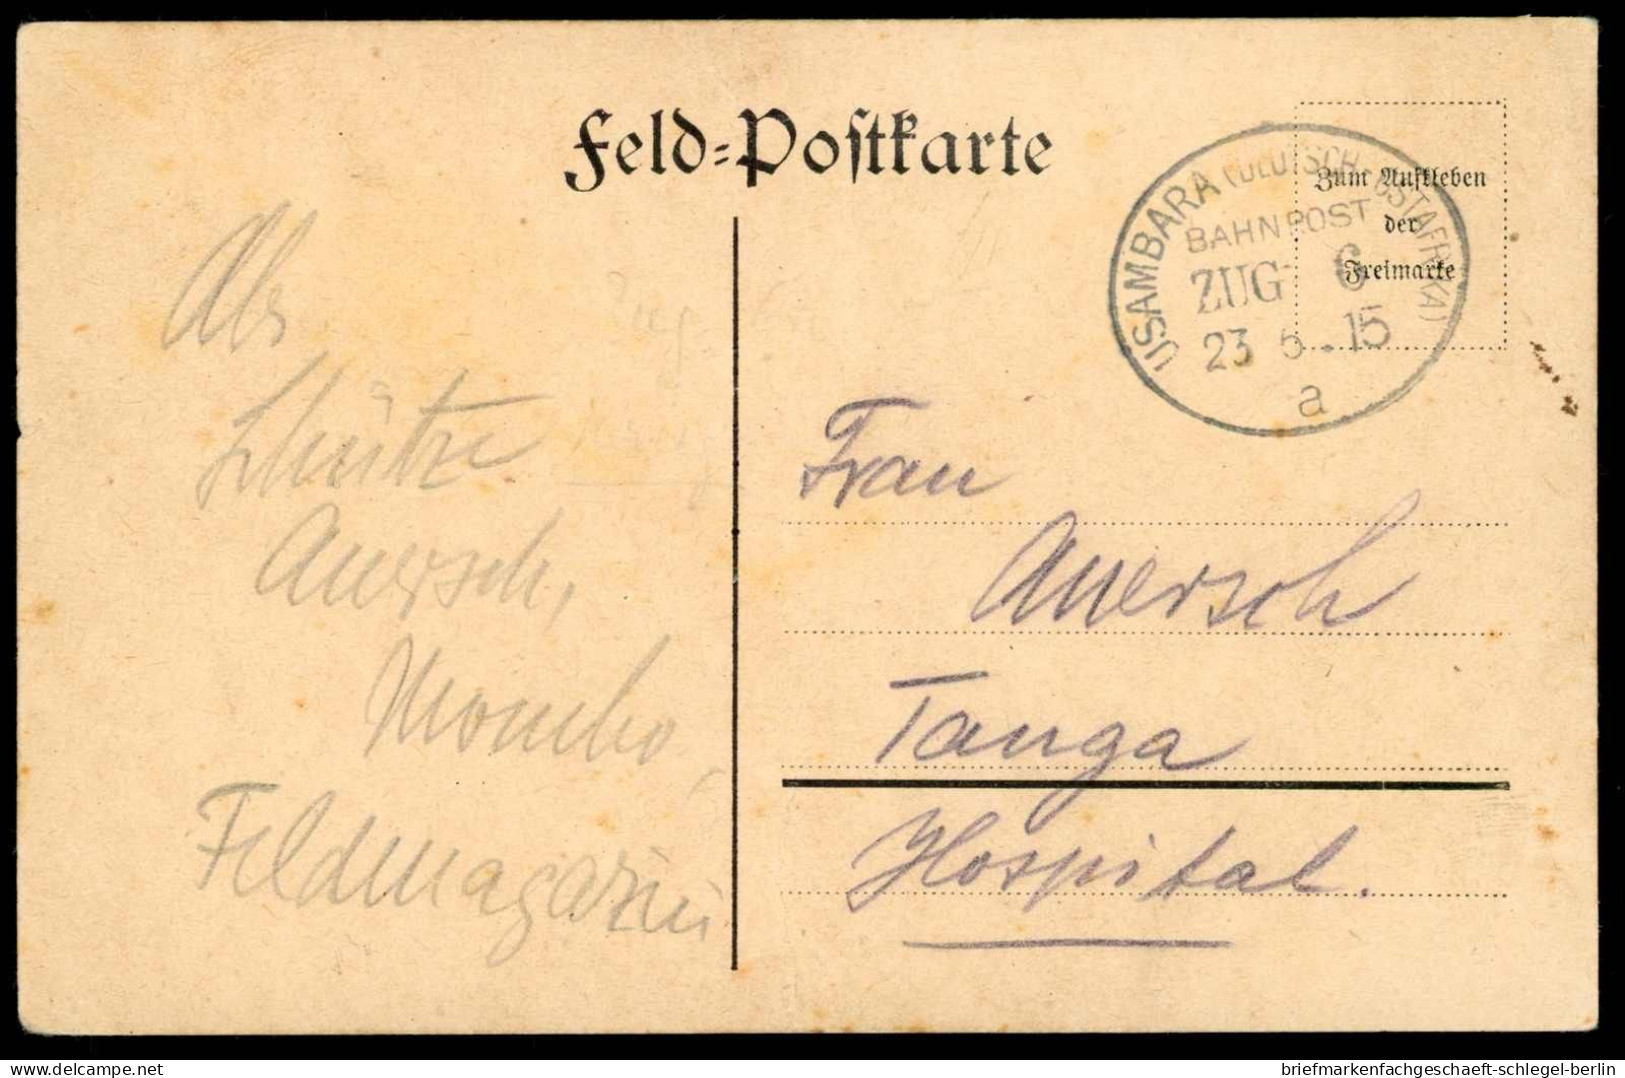 Feld-Postkarte
Zum Aufkleben
der
Freimarke
USAMBARA (DEUTSCH-OSTAFRIKA)
BAHNPOST
ZUG 6
23 5.15
a
Abs
Schütze
Auersch,
Mombo,
Feldmagazin
Frau
Auersch
Tanga
Hospital.
briefmarkenfachgeschaeft-schlegel-berlin